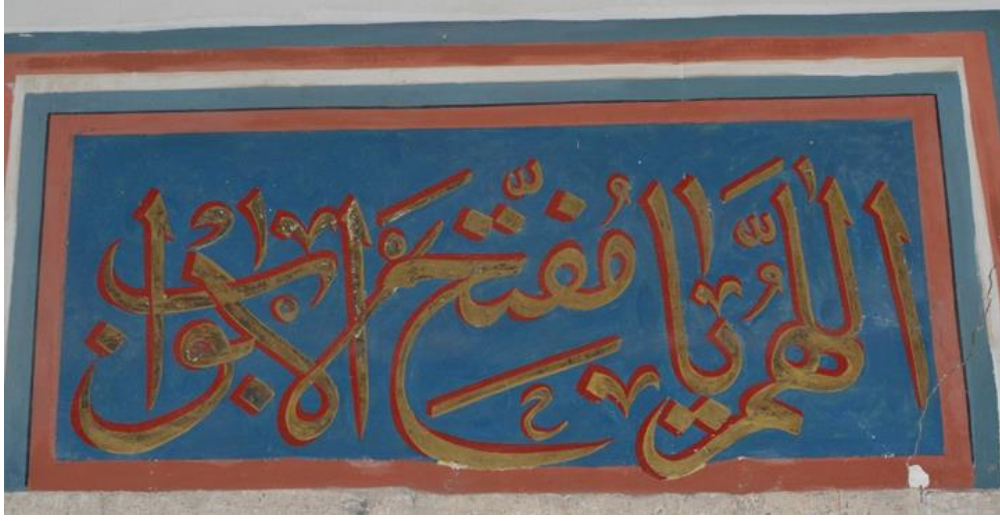 اللهم يا مفتح الابواب